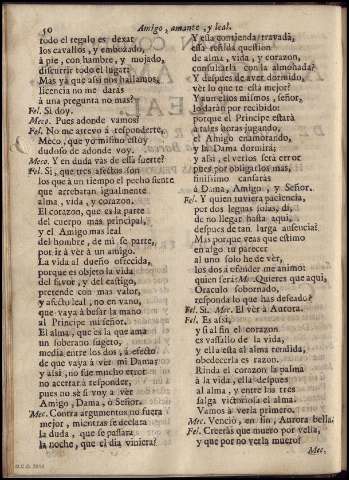 50
Amigo, amante, y leal.
todo el regalo es dexar
los cavallos, y embozado,
à pie, con hambre, y mojado,
discurrir todo el lugar?
Mas yà que assi nos hallamos,
licencia no me daràs
à una pregunta no mas?
Fel. Si doy.
Meco. Pues adonde vamos?
Fel. No me atrevo à responderte,
Meco, que yo mismo estoy
dudoso de adonde voy.
Meco. Y en duda vàs de essa suerte?
Fel. Si, que tres afectos son
los que à un tiempo el pecho siente
que arrebatan igualmente
alma, vida, y corazon.
El corazon, que es la parte
del cuerpo mas principal,
y el Amigo mas leal
del hombre, de mi se parte,
por ir à vèr à un amigo.
La vida al dueño ofrecida,
porque es objeto la vida
del favor, y del castigo,
pretende con mas valor,
y afecto leal, no en vano,
que vaya à besar la mano
al Principe mi señor.
El alma, que es la que ama
un soberano sugeto,
media entre los dos à efecto
de que vaya à vèr mi Dama;
y assi, no fue mucho error
no acertar à responder,
pues no sè si voy à vèr
Amigo, Dama, ò Señor.
Mec. Contra argumentos no fuera
mejor, mientras se declara
la duda, que se passara
la noche, que el dia viniera?
Y essa contienda travada,
essa reñida question
de alma, vida, y corazon,
consultarla con la almohada?
Y despues de aver dormido,
vèr lo que te està mejor?
Y aun ellos mismos, señor,
lo daràn por recibido:
porque el Principe estarà
à tales horas jugando,
el Amigo enamorando,
y la Dama dormirà;
y assi, el verlos serà error
pues por obligarlos mas,
finissimo cansaràs
à Dama, Amigo, y Señor.
Fel. Y quien tuviera paciencia,
por dos leguas solas, di,
de no llegar hasta aqui,
despues de tan larga ausencia?
Mas porque veas que estimo
en algo tu parecer
al uno solo he de vèr,
los dos à ofender me animo:
quien serà? Mec. Quieres que aqui,
Oraculo sobornado,
responda lo que has deseado?
Fel. Si. Mec. El vèr à Aurora.
Fel. Es assi,
y si al fin el corazon
es vassallo de la vida,
y ella està al alma rendida,
obedecerla es razon.
Rinda el corazon la palma
à la vida, ella despues
al alma, y entre los tres
salga victoriosa el alma.
Vamos à verla primero.
Mec. Venciò, en fin, Aurora bella.
Fel. Creeràs que muero por vella,
y que por no verla muero?
Mec.